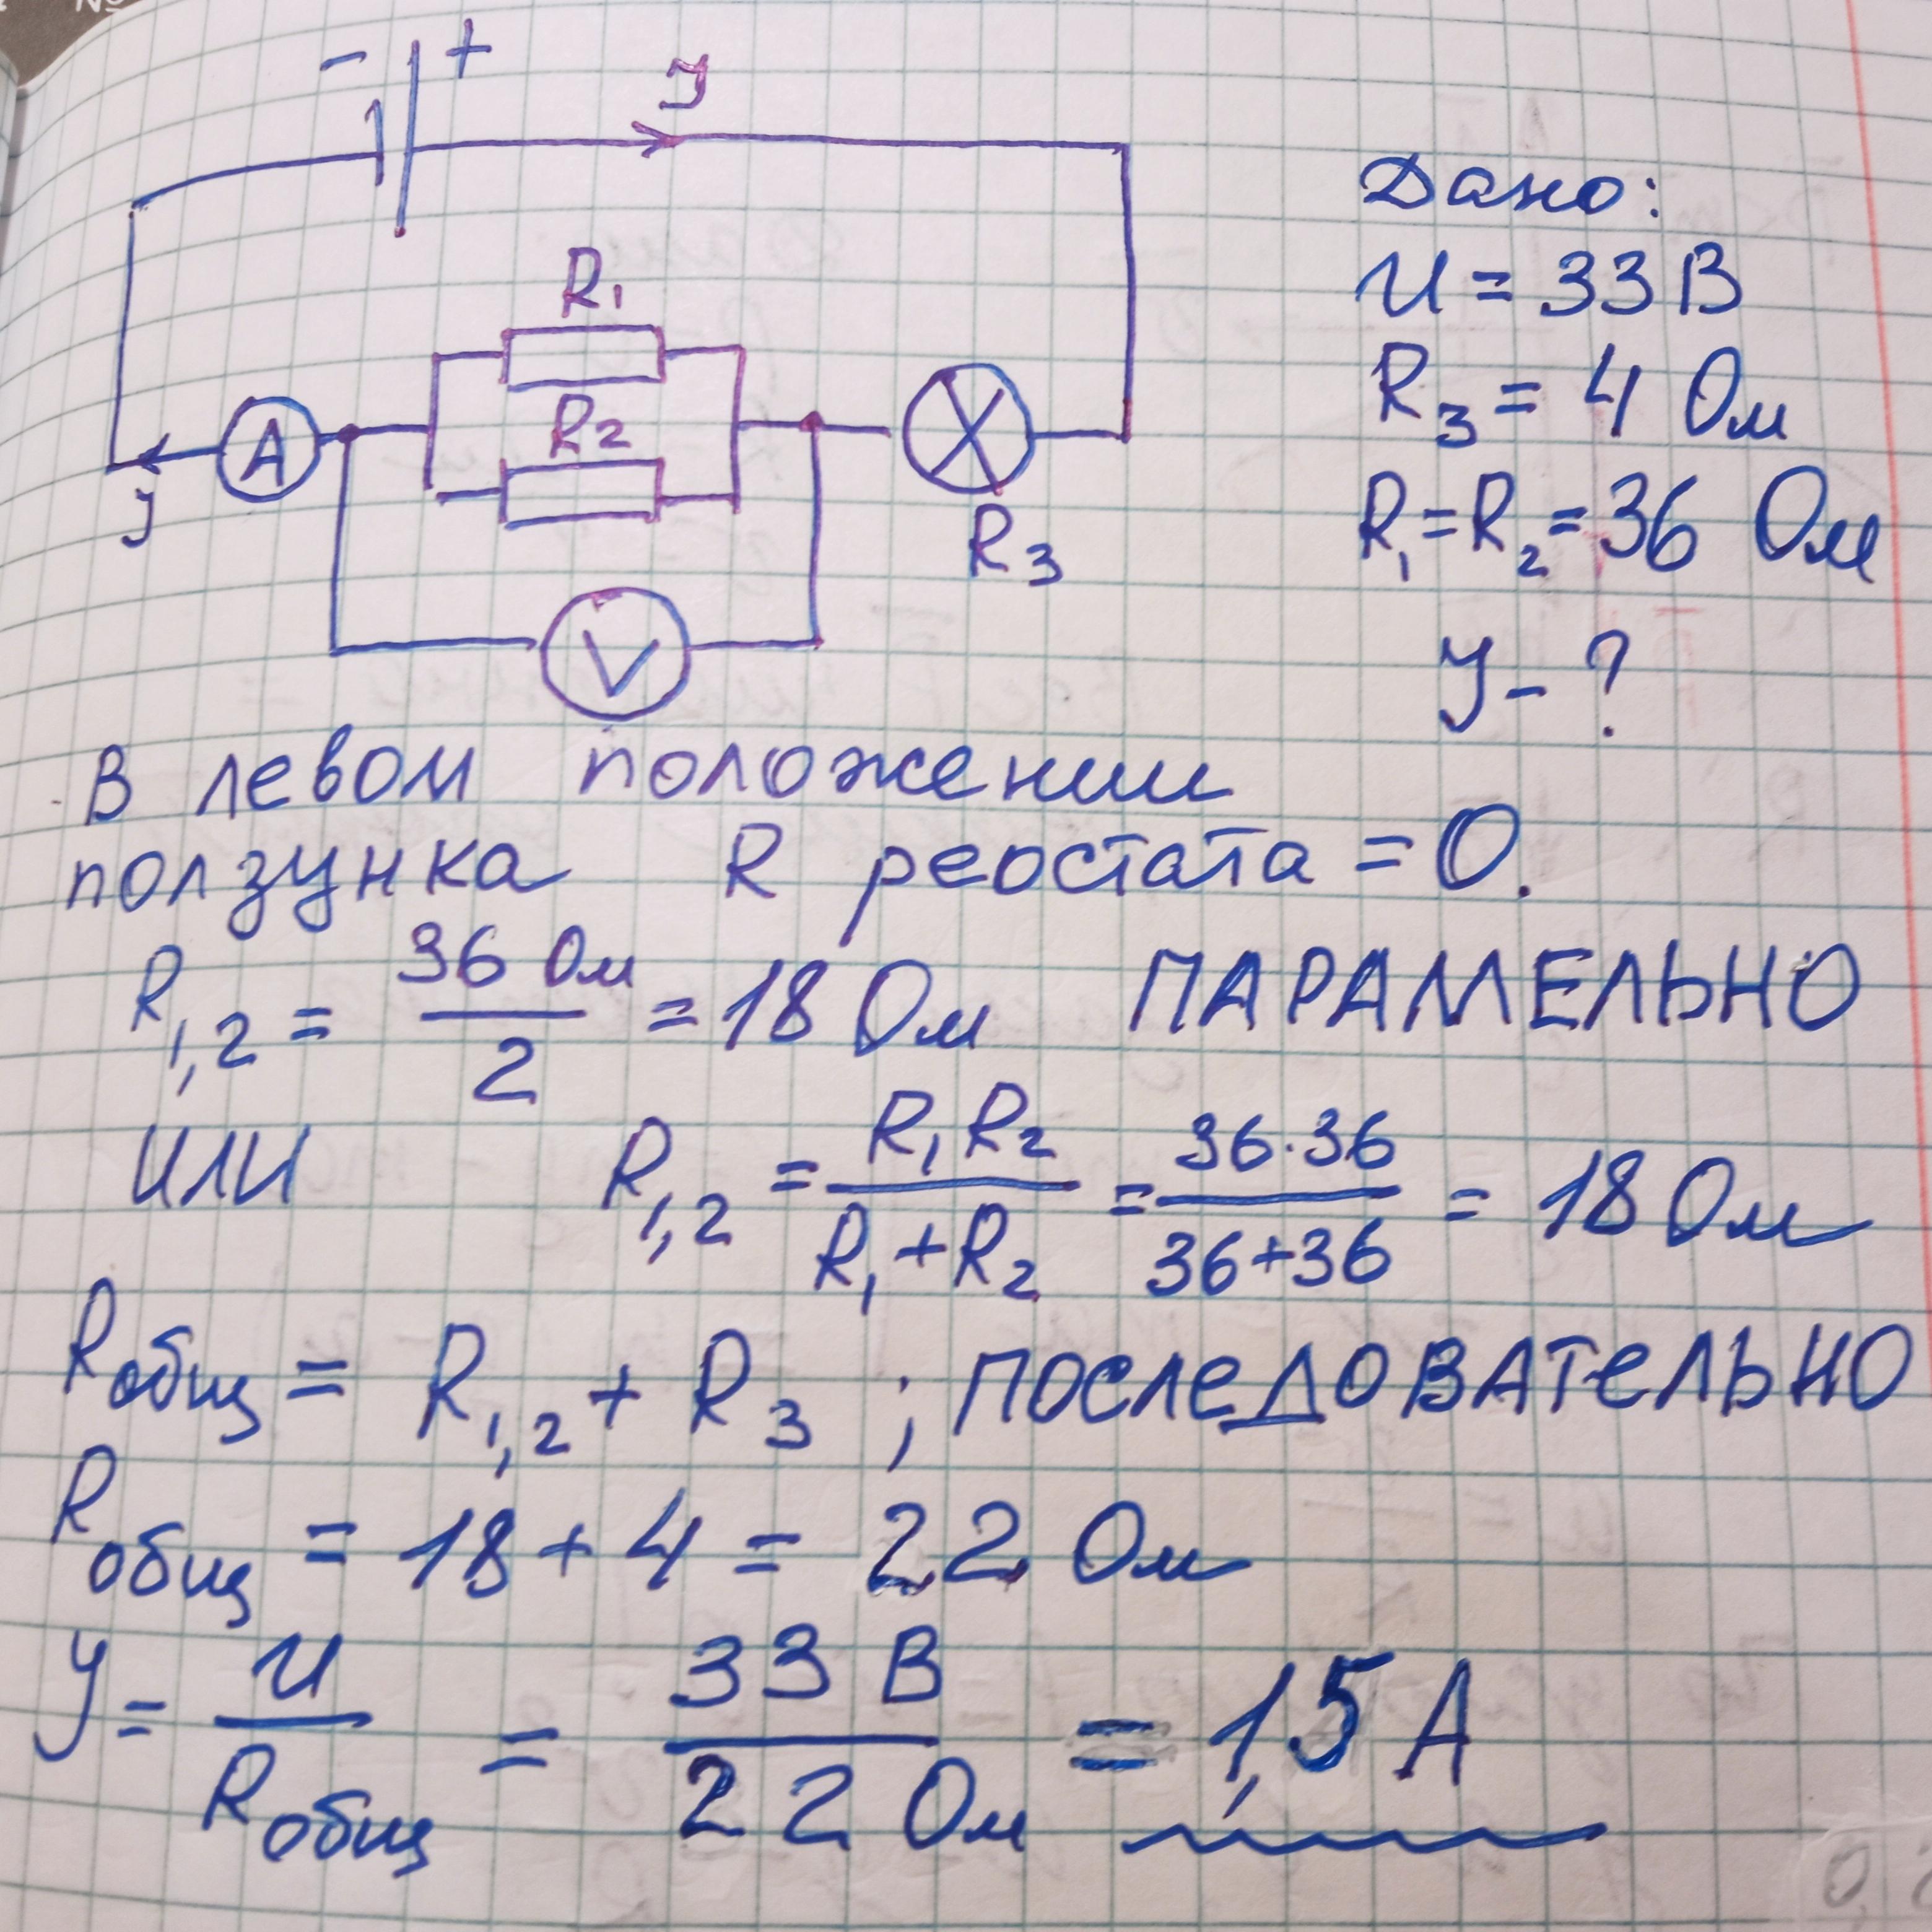 - +
У
R₁
R₂
A
У
R₃
V
Дано:
U = 33 В
R₃ = 4 Ом
R₁ = R₂ = 36 Ом
У - ?
В левом положении
ползунка R реостата = 0.
R₁,₂ = 36 Ом / 2 = 18 Ом ПАРАЛЛЕЛЬНО
ИЛИ R₁,₂ = R₁R₂ / R₁+R₂ = 36·36 / 36+36 = 18 Ом
Rобщ = R₁,₂ + R₃ ; ПОСЛЕДОВАТЕЛЬНО
Rобщ = 18 + 4 = 22 Ом
У = U / Rобщ = 33 В / 22 Ом = 1,5 А